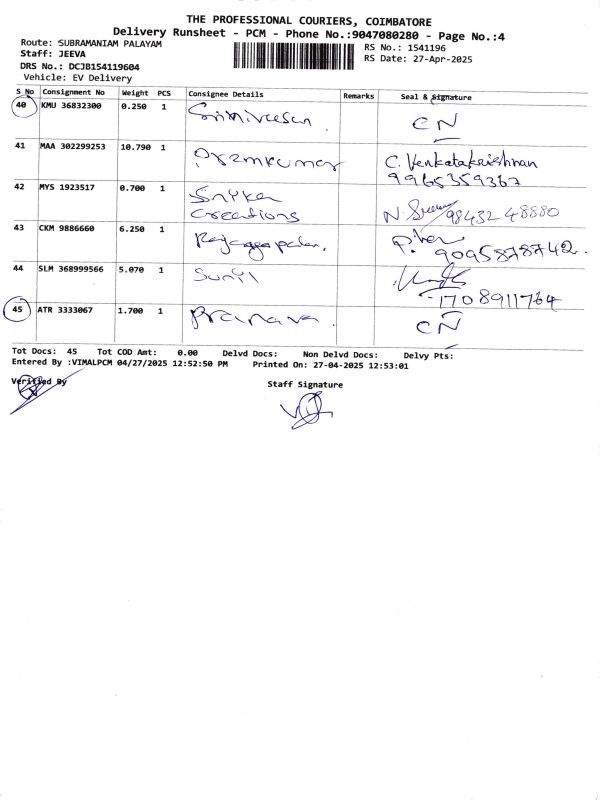 THE PROFESSIONAL COURIERS, COIMBATORE
Delivery Runsheet - PCM - Phone No.:9047080280 - Page No.:4
Route: SUBRAMANIAM PALAYAM
Staff: JEEVA
DRS No.: DCJB154119604
Vehicle: EV Delivery
RS No.: 1541196
RS Date: 27-Apr-2025
S No Consignment No Weight PCS Consignee Details Remarks Seal & Signature
40 KMU 36832300 0.250 1 Srinivasan CN
41 MAA 302299253 10.790 1 Premkumar C. Venkatakrishnan
9965359367
42 MYS 1923517 0.700 1
Creations 98432 48880
43 CKM 9886660 6.250 1 Rajagopalan.
9095878742.
44 SLM 368999566 5.070 1 Sunil
1708911764
45 ATR 3333067 1.700 1 Pranava. CN
Tot Docs: 45 Tot COD Amt: 0.00 Delvd Docs: Non Delvd Docs: Delvy Pts:
Entered By :VIMALPCM 04/27/2025 12:52:50 PM Printed On: 27-04-2025 12:53:01
Verified By Staff Signature